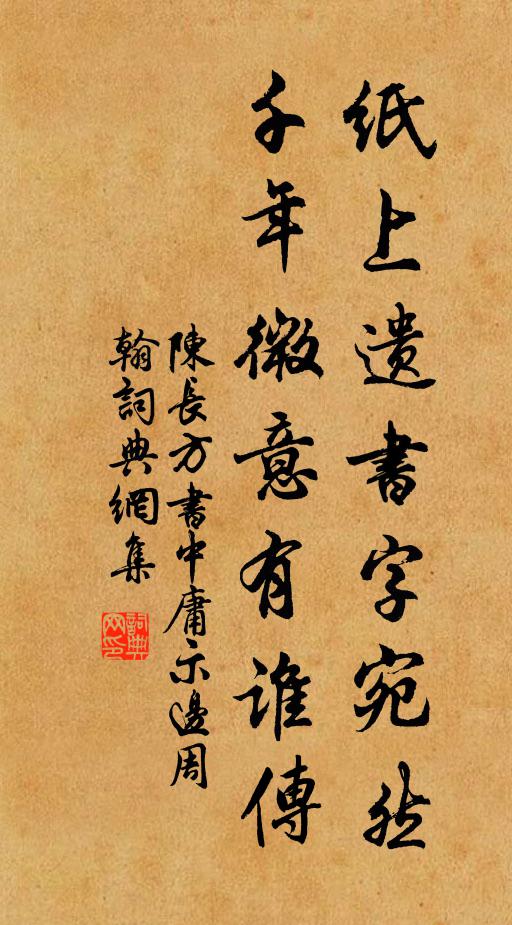 紙上遺書字宛然
千年微意有誰傳
陳長方書中庸示邊周
翰詞典網集
詞典網印